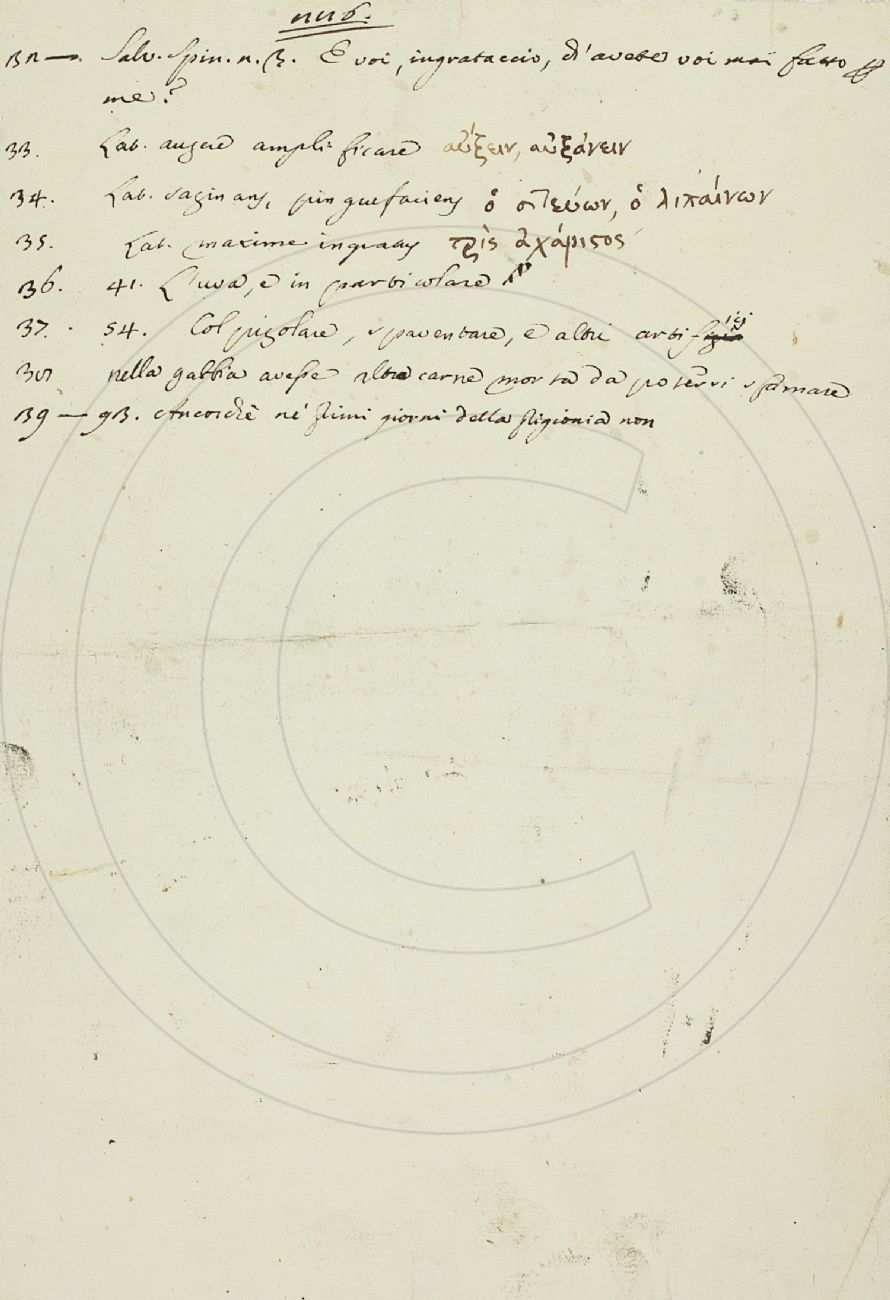 32 — Salv. Spin. n. 3. E voi, ingrataccio, ch'avete voi mai fatto p
me?
33. Lat. augere amplificare αὔξειν, αὐξάνειν
34. Lat. saginans, pinguefaciens ὁ σιτεύων, ὁ λιπαίνων
35. Lat. maxime ingratus τρὶς ἀχάριστος
36. 41. L'uva, e in particolare
37. 54. Col pigolare, spaventare, e altri artifizi
38 nella gabbia avesse altra carne morta da potersi sfamare
39 — 93. Ancorchè ne' primi giorni della prigionia non